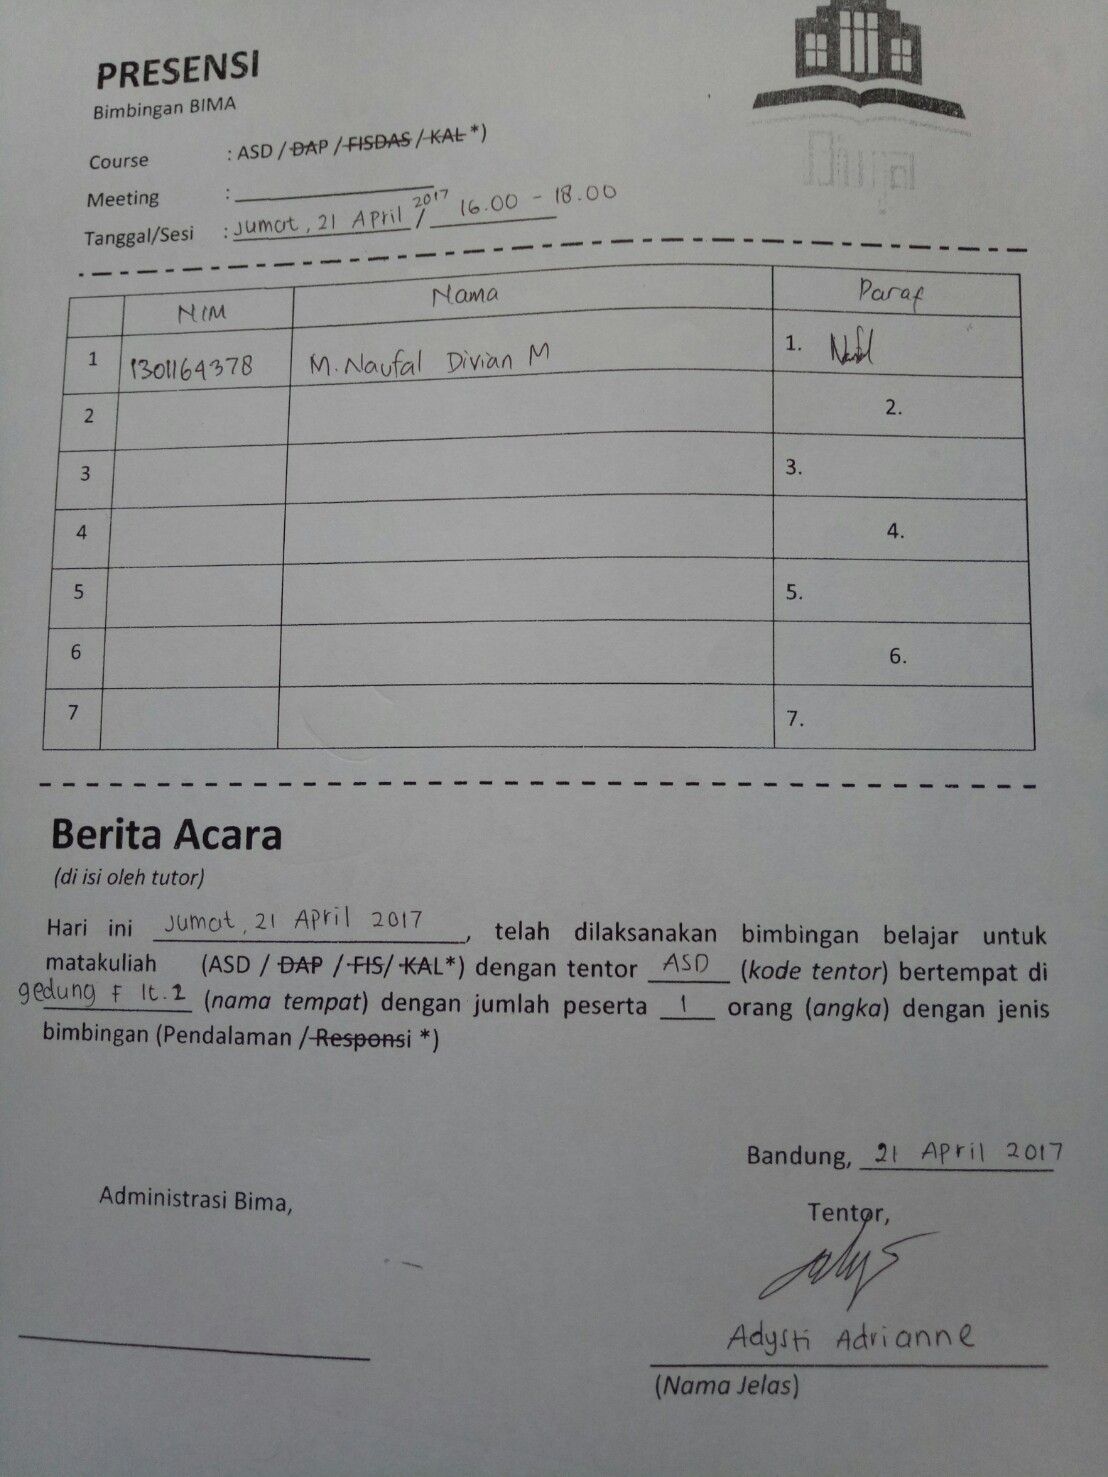 PRESENSI
Bimbingan BIMA
Course : ASD / DAP / FISDAS / KAL *)
Meeting :
Tanggal/Sesi : Jumat, 21 April 2017 / 16.00 - 18.00
NIM Nama Paraf
1 1301164378 M. Naufal Divian M 1.
2 2.
3 3.
4 4.
5 5.
6 6.
7 7.
Berita Acara
(di isi oleh tutor)
Hari ini Jumat, 21 April 2017, telah dilaksanakan bimbingan belajar untuk
matakuliah (ASD / DAP / FIS/ KAL*) dengan tentor ASD (kode tentor) bertempat di
gedung F lt.2 (nama tempat) dengan jumlah peserta 1 orang (angka) dengan jenis
bimbingan (Pendalaman / Responsi *)
Bandung, 21 April 2017
Administrasi Bima,
Tentor,
Adysti Adrianne
(Nama Jelas)